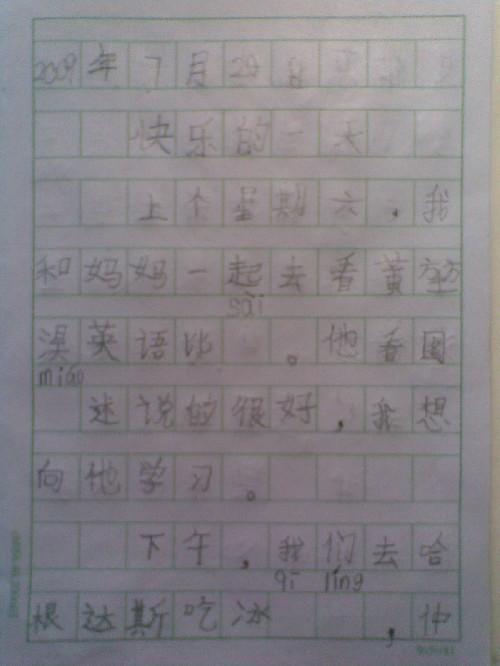 2009年7月29日
快乐的一天
上个星期六，我
和妈妈一起去看黄
sài
英语比 。他看图
miáo
述说的很好，我想
向他学习。
下午，我们去哈
qi líng
根达斯吃冰 ，仲